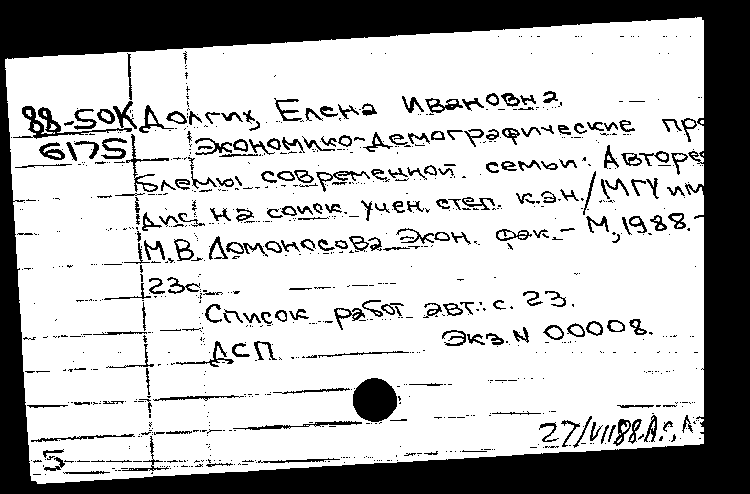 88-50К Долгих, Елена Ивановна
6175 Экономико-демографические про
блемы современной семьи: Авторе
дис. на соиск. учен. степ. к.э.н./МГУ им
М.В. Ломоносова. Экон. фак.- М, 1988.-
23с.
Список работ авт.: с. 23.
ДСП Экз. N 00008.
27/VII88.
5